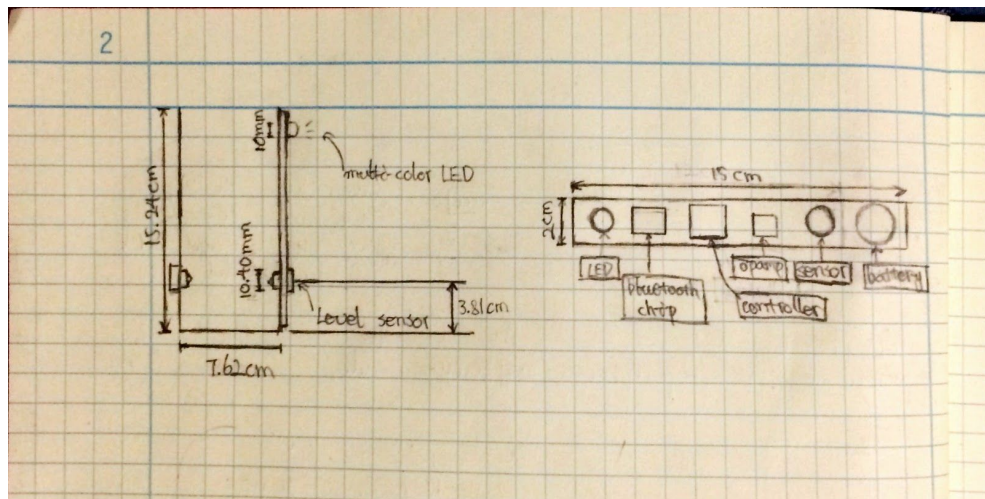 2
10mm
multi-color LED
15.24cm
10.40mm
Level sensor
3.81cm
7.62cm
15cm
2cm
LED
bluetooth
chip
controller
opamp
sensor
battery